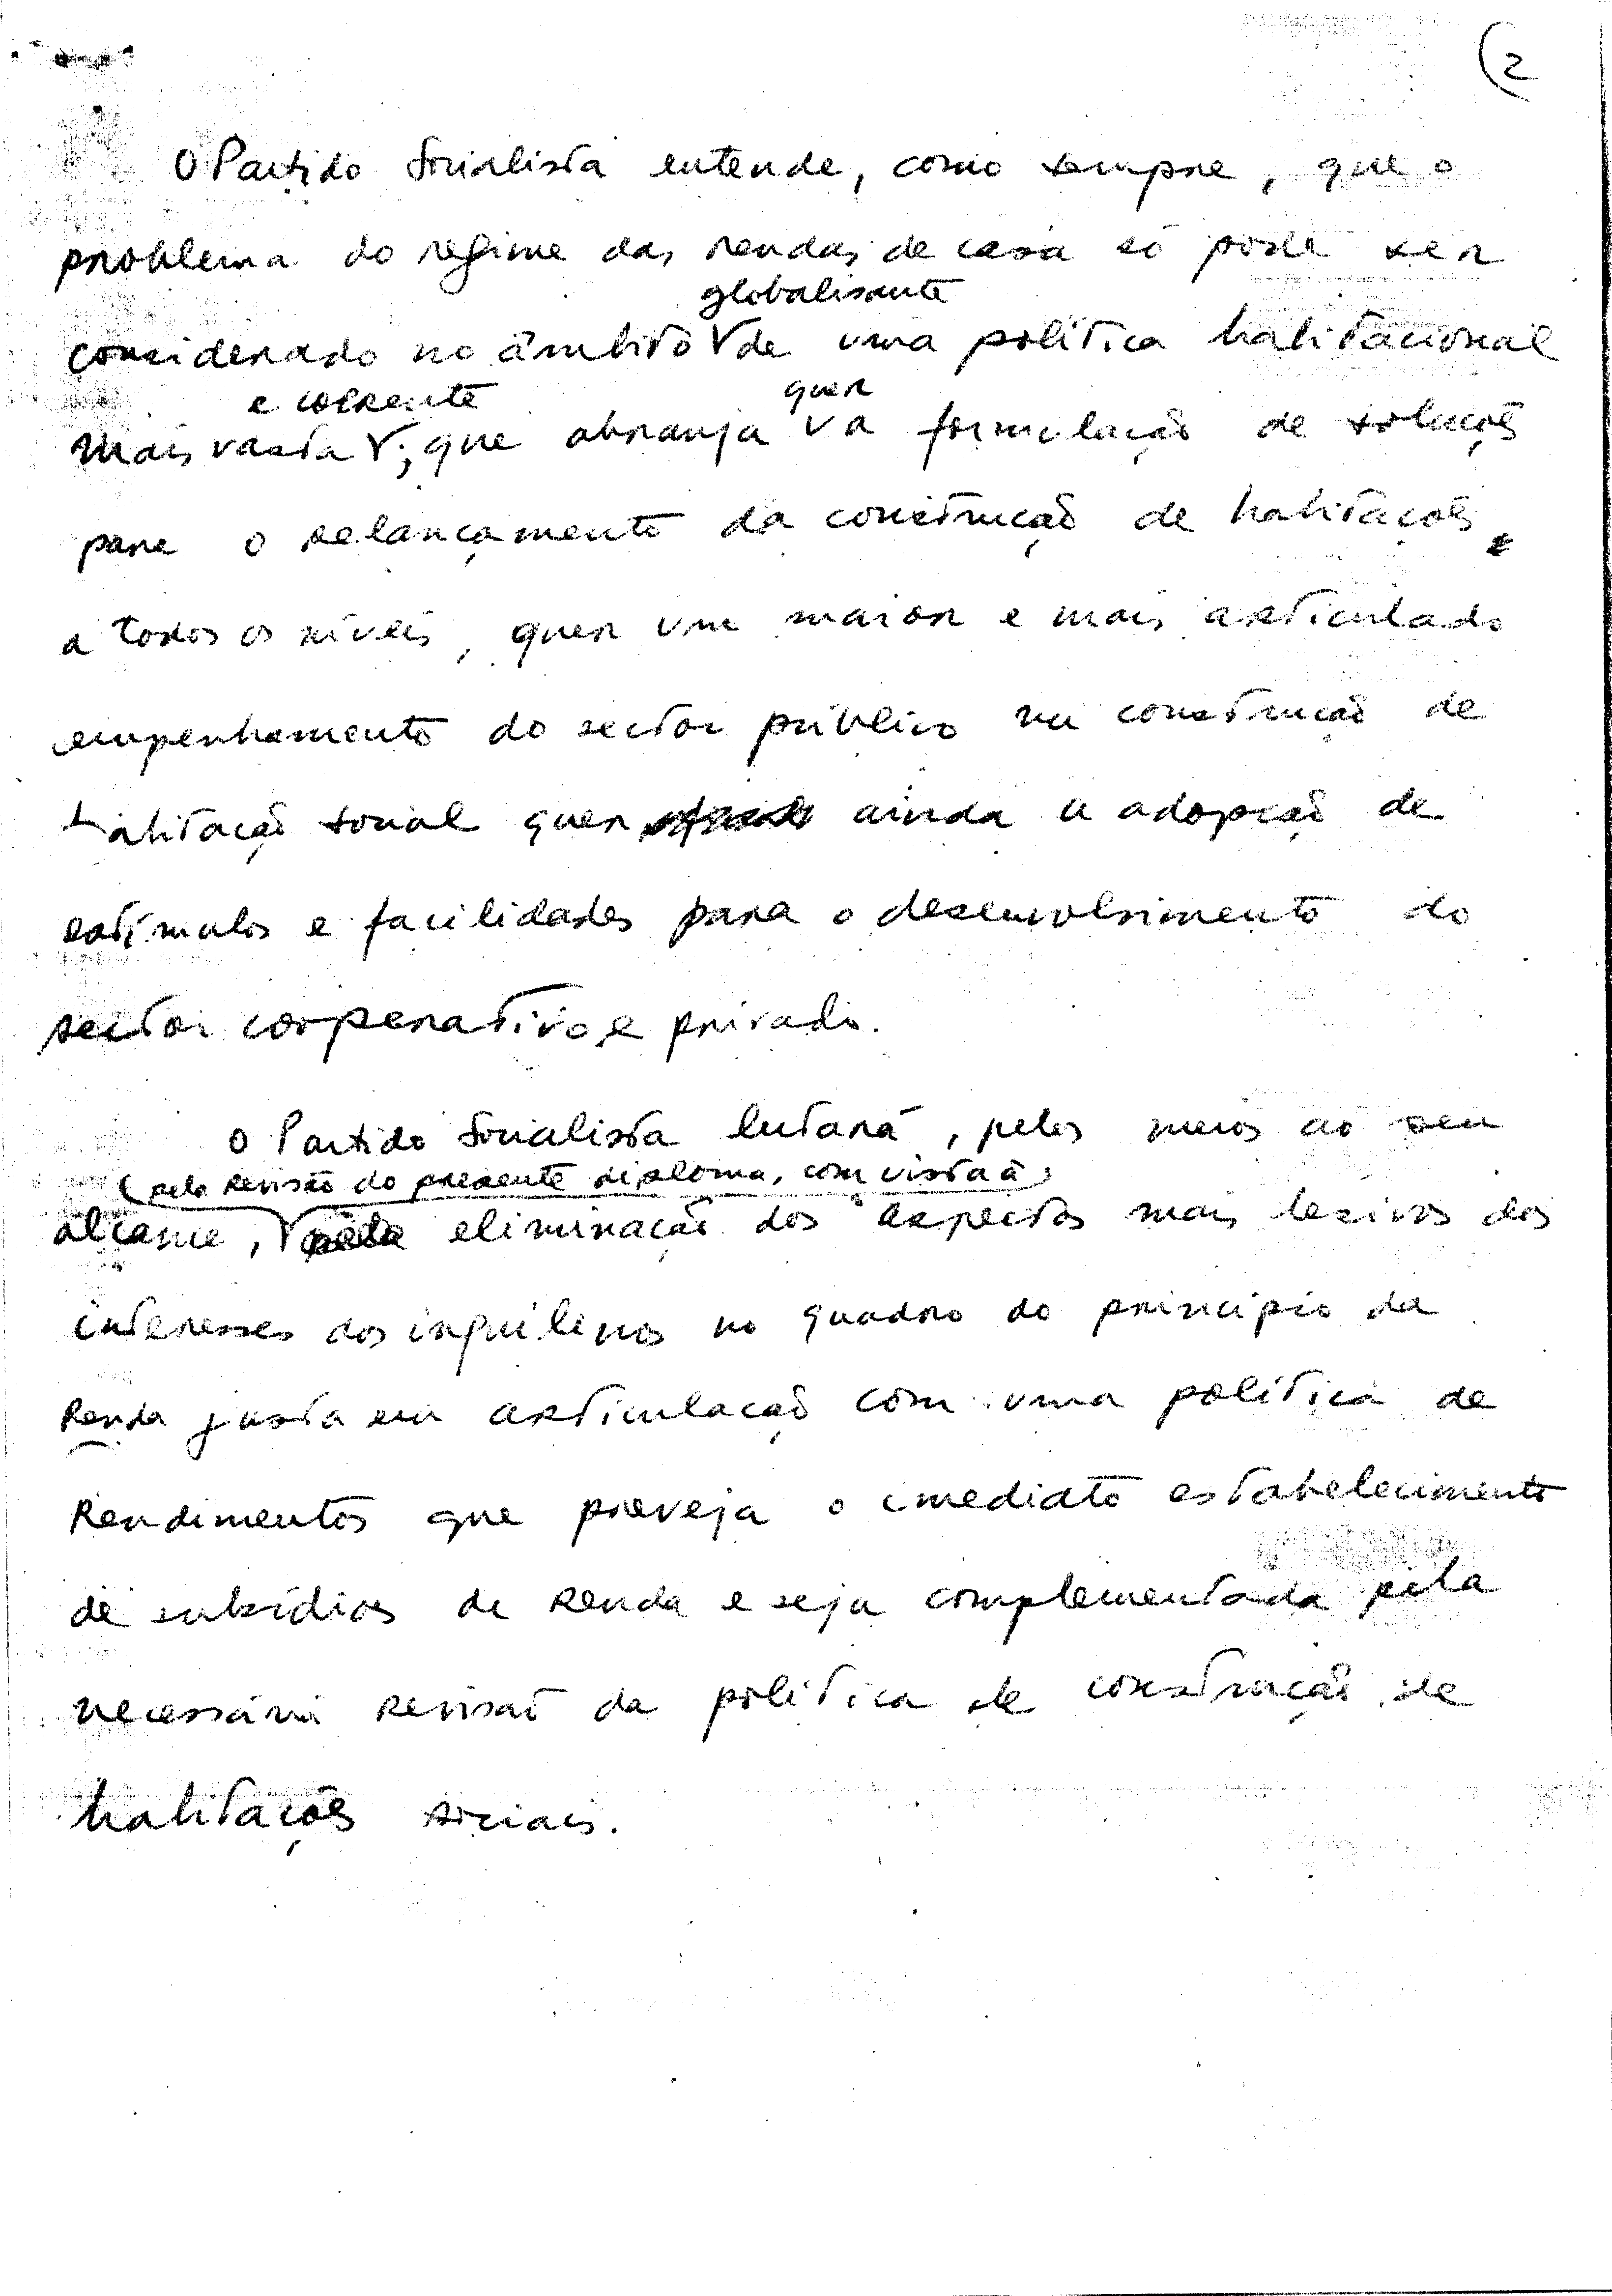 (2
O Partido Socialista entende, como sempre, que o
problema do regime das rendas de casa só pode ser
globalisante
considerado no âmbito V de uma política habitacional
e coerente quer
mais vasta V, que abranja V a formulação de soluções
para o relançamento da construção de habitações
a todos os níveis, quer um maior e mais articulado
empenhamento do sector público na construção de
habitação social quer ainda a adopção de
estímulos e facilidades para o desenvolvimento do
sector cooperativo e privado.
O Partido Socialista lutará, pelos meios ao seu
(pela revisão do presente diploma, com vista à)
alcance, V pela eliminação dos aspectos mais lesivos dos
interesses dos inquilinos no quadro do princípio da
Renda justa em articulação com uma política de
Rendimentos que preveja o imediato estabelecimento
de subsídios de renda e seja complementada pela
necessária revisão da política de construção de
habitações sociais.